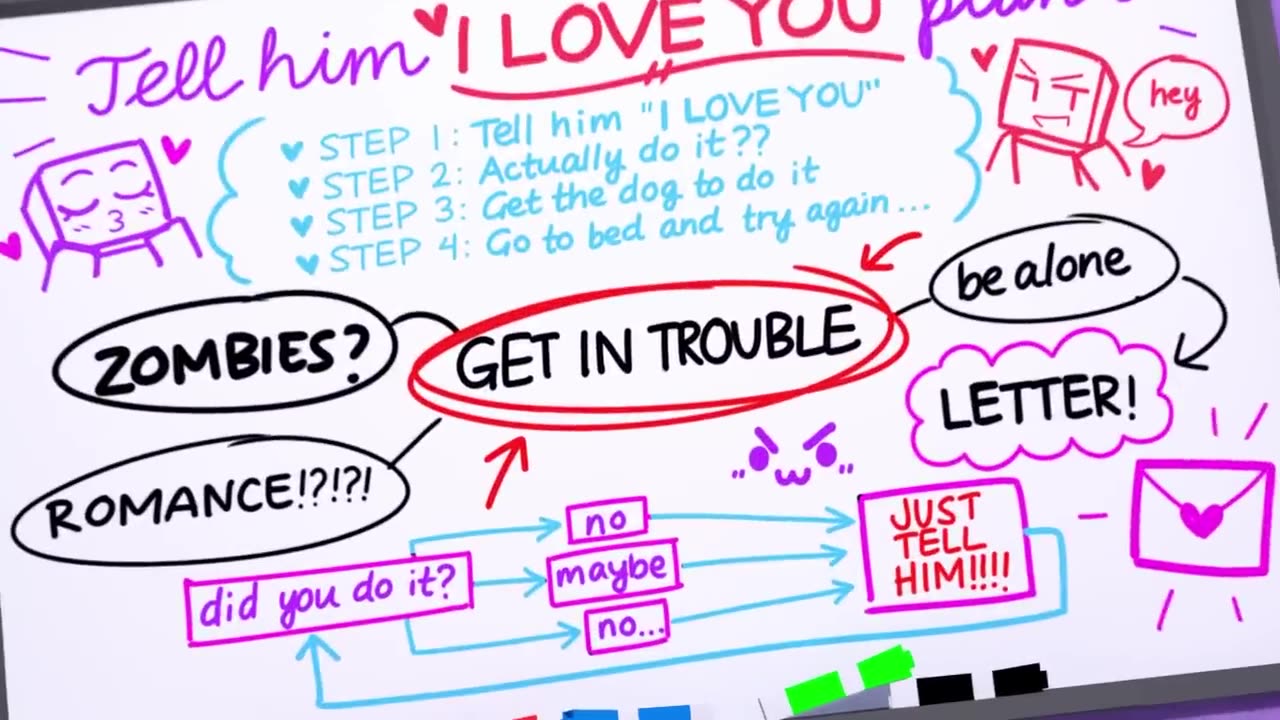 Tell him I LOVE YOU plan
STEP 1: Tell him "I LOVE YOU"
STEP 2: Actually do it??
STEP 3: Get the dog to do it
STEP 4: Go to bed and try again...
hey
be alone
ZOMBIES?
GET IN TROUBLE
LETTER!
ROMANCE!?!?!
did you do it?
no
maybe
no...
JUST
TELL
HIM!!!!